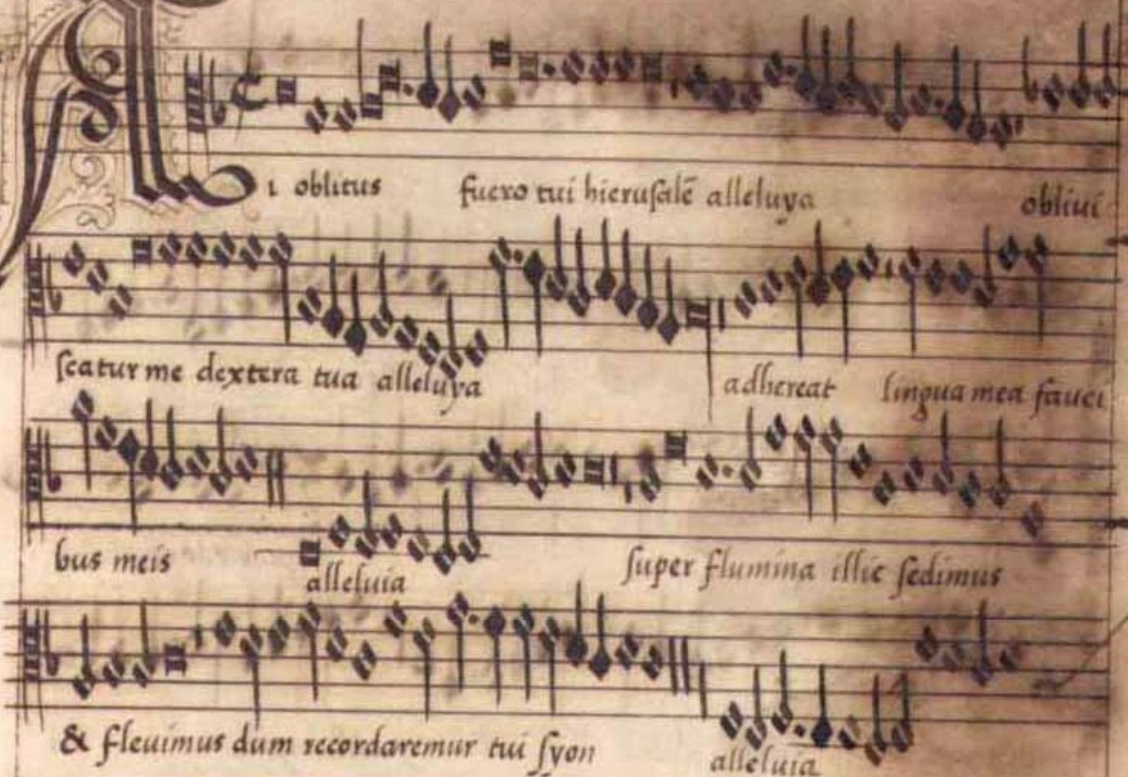 i oblitus fuero tui hierusalē alleluya obliui
scatur me dextera tua alleluya adhereat lingua mea fauci
bus meis alleluia super flumina illic sedimus
& fleuimus dum recordaremur tui syon alleluia